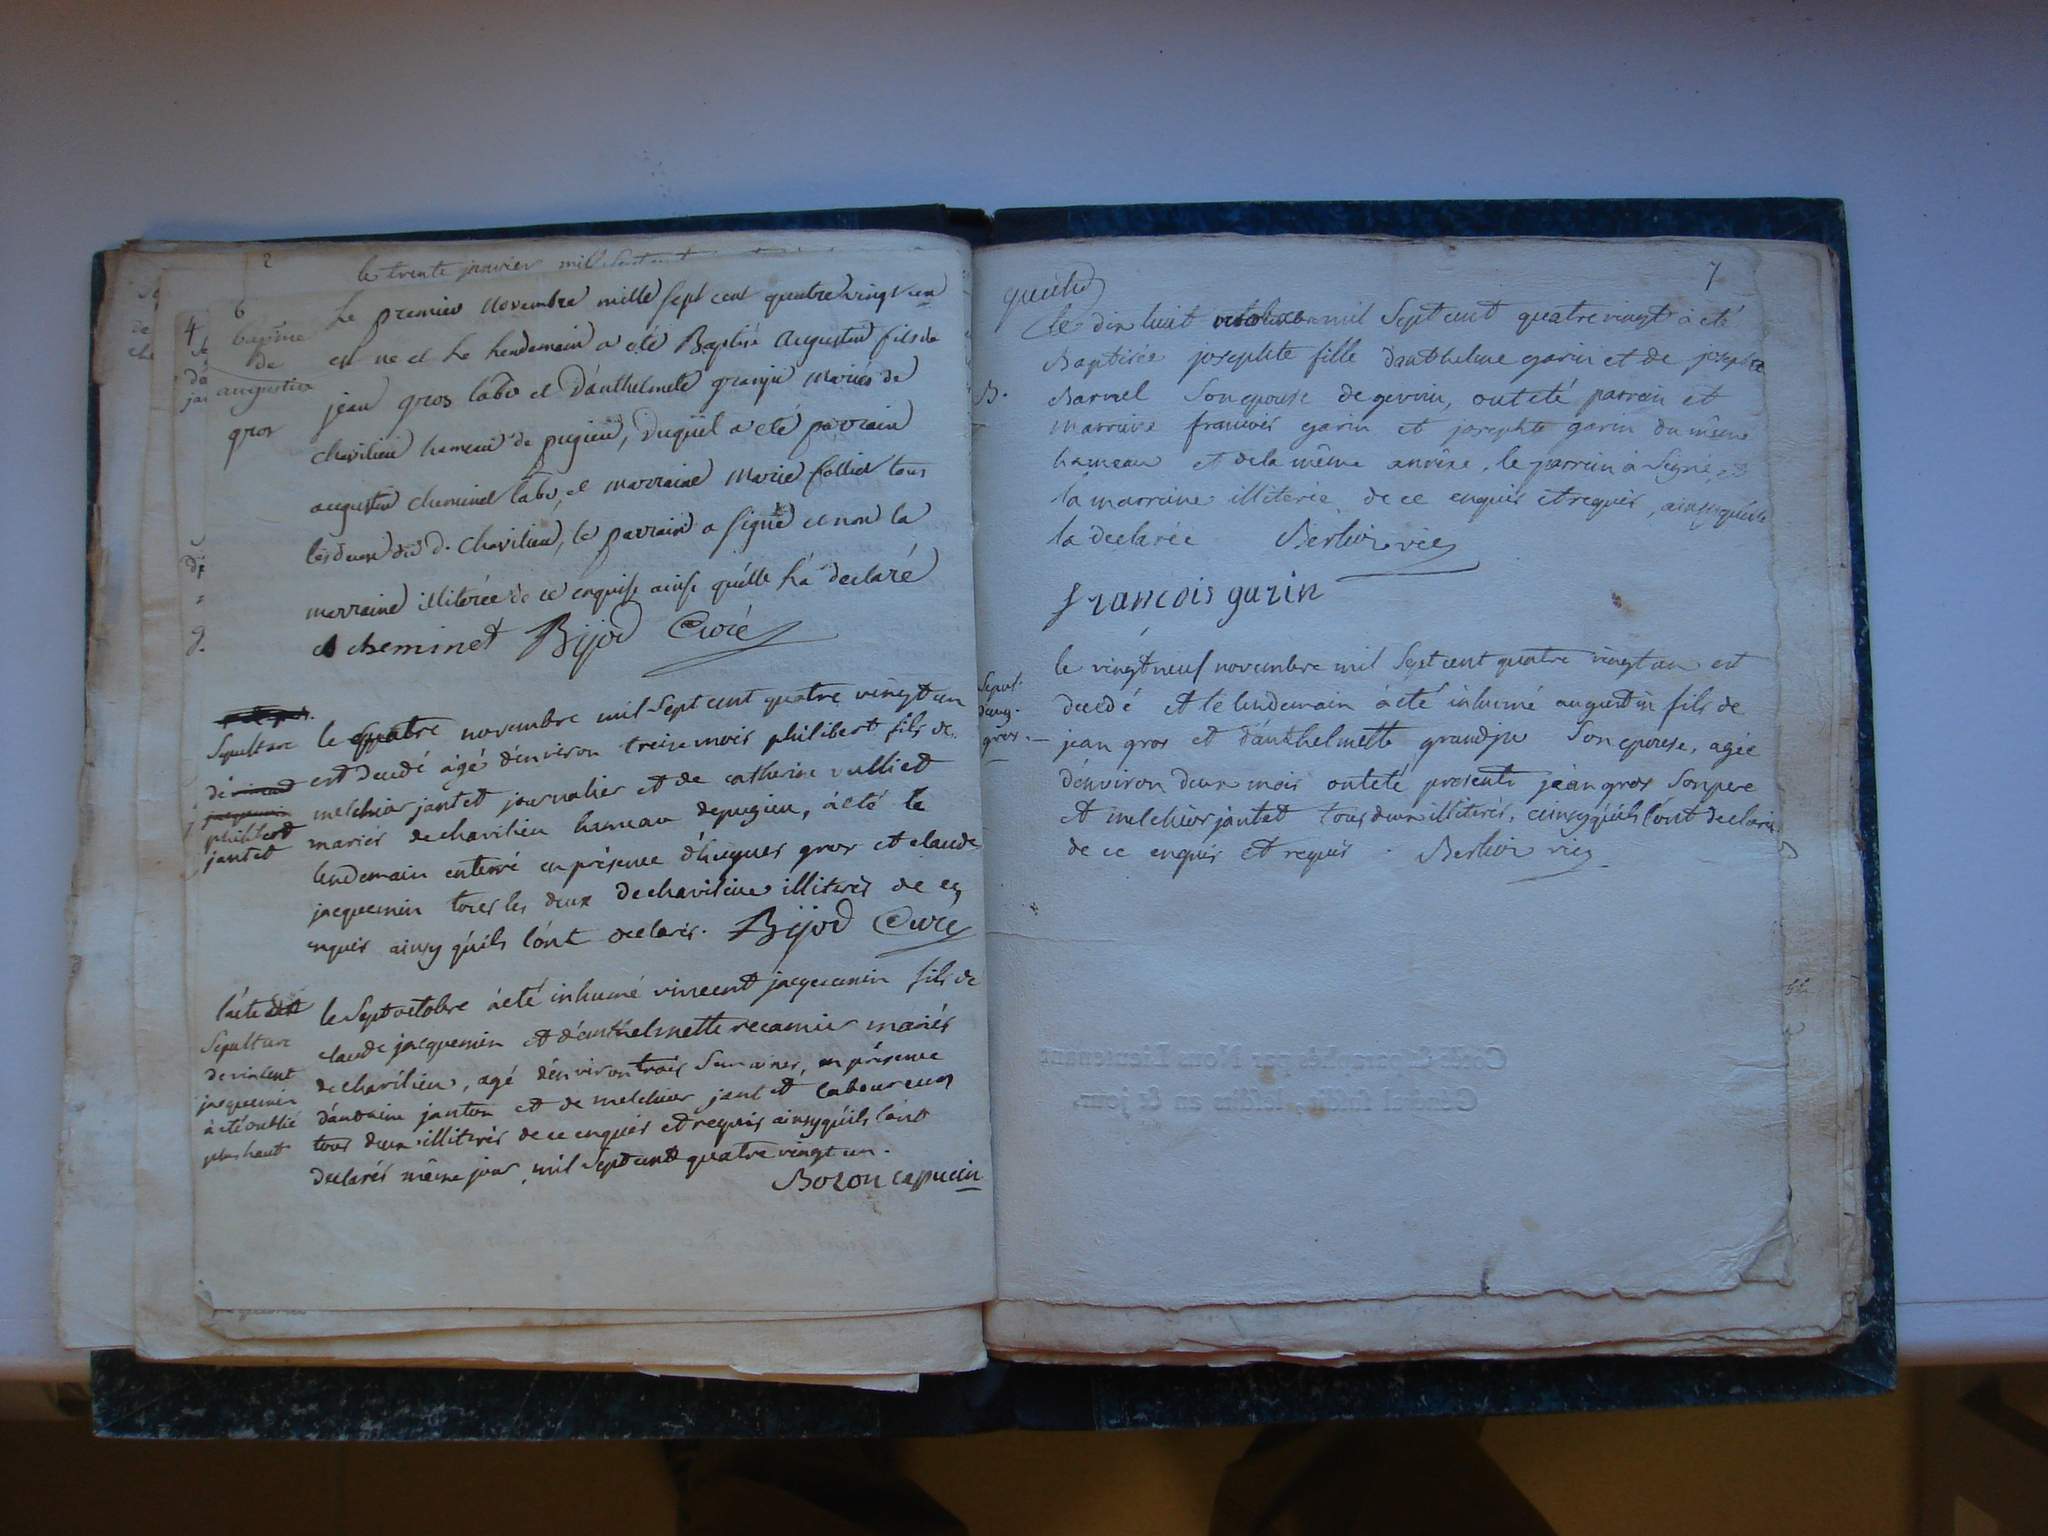 2
le trente janvier mil Sept cent
6
bapme
de
augustin
gros
Le premier Novembre mille sept cent quatre vingt un
est ne et le hendemain a été Baptisé augustin fils de
jean gros labr et D'anthelmete granju Mariés de
chavilieu hameau de pugieu, Duquel a eté parrain
augustin cheminet labr, et marraine Marie follier tous
les deux du d. Chavilieu, le parrain a signé et non la
marraine illiterée de ce enquise ainse quélle há declaré
A cheminet Bijod Curé
Sepulture
de vincent
jacquemin
philibert
jantet
le quatre novembre mil Sept cent quatre vingt un
est decedé agé d'environ treise mois philibert fils de
melchior jantet journalier et de catherine vulliet
mariés de chavilieu hameau de pugieu, à eté le
lendemain enterré en présence d'hugues gros et claude
jacquemin tous les deux de chavilieu illiterés de ce
enquis ainsy qúils lónt declarés. Bijod Curé
l'acte de
Sepulture
de vincent
jacquemin
à eté oublié
plus haut
le Sept octobre à eté inhumé vincent jacquemin fils de
claude jacquemin et d'anthelmette recamier mariés
de chavilieu, agé d'environ trois Semaines, en présence
d'antoine janton et de melchior jantet laboureurs
tous deux illiterés de ce enquis et requis ainsy qúils lónt
declarés même jour, mil Sept cent quatre vingt un.
Bozon capucin
7
le dix huit octobre mil Sept cent quatre vingt à eté
B.
Baptisée josephte fille d'anthelme garin et de josephte
Barnel Son epouse de gevrin, ont eté parrein et
marraine francois garin et josephte garin du même
hameau et de la même anvéxe, le parrein à Signé, et
la marraine illiterée de ce enquis et requis, ainsy qu'elle
la declarée Berlioz vic
francois garin
Sepul.
d'aug.
gros.
le vingt neuf novembre mil Sept cent quatre vingt un est
decedé et le lendemain à eté inhumé augustin fils de
jean gros et d'anthelmette grandju Son epouse, agée
d'environ deux mois ont eté presents jean gros Son pere
et melchior jantet tous deux illiterés, ainsy qúils lónt declarés
de ce enquis et requis. Berlioz vic
Coté & paraphé par Nous Lieutenant
Général susdit, lesdits an & jour.